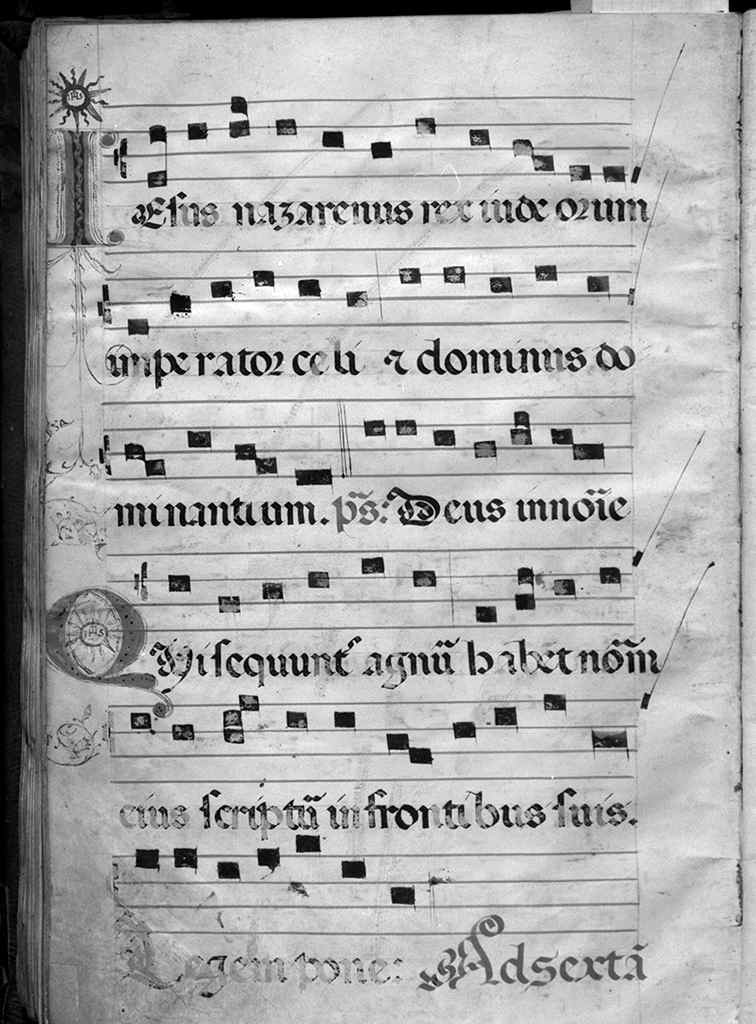 IHS
IEsus nazarenus rex iude orum
impe rator celi ⁊ dominus do
mi nanti um. ps̄: Deus in noīe
IHS
QVi sequunt̄ agnū habet nom̄
eius scriptū in fronti bus suis.
Legem pone: Ad sextā